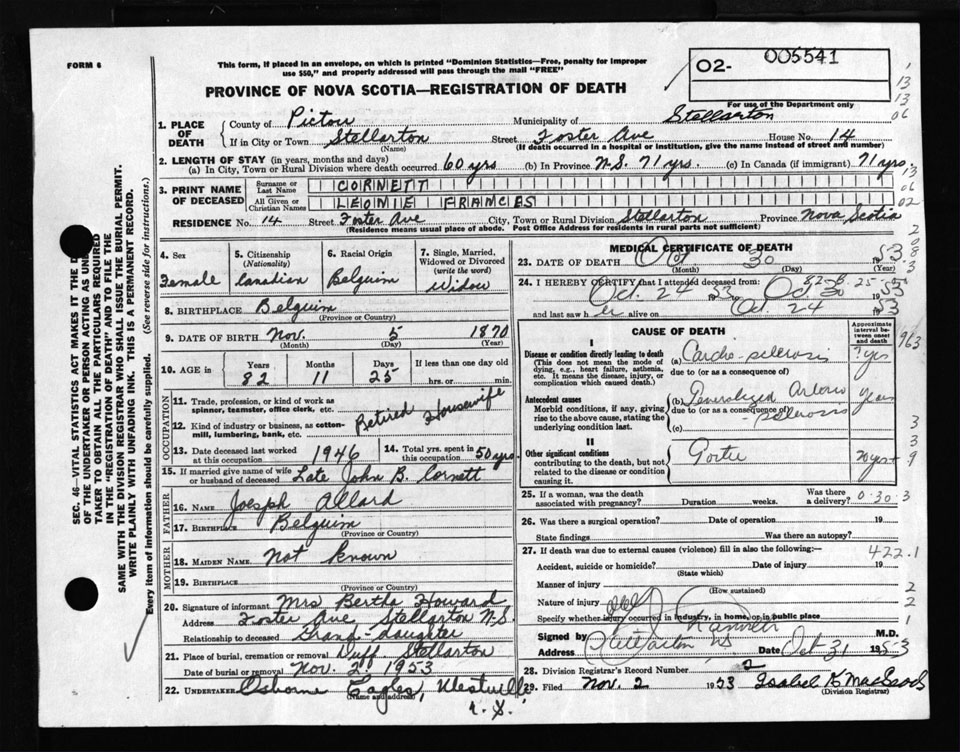 FORM 6
This form, if placed in an envelope, on which is printed "Dominion Statistics—Free, penalty for improper
use $50," and properly addressed will pass through the mail "FREE"
O2- 005541
PROVINCE OF NOVA SCOTIA—REGISTRATION OF DEATH
For use of the Department only
1. PLACE OF DEATH
County of Pictou Municipality of Stellarton
If in City or Town Stellarton Street Foster Ave House No. 14
(Name) (If death occurred in a hospital or institution, give the name instead of street and number)
2. LENGTH OF STAY (in years, months and days)
(a) In City, Town or Rural Division where death occurred 60 yrs (b) In Province N.S. 71 yrs. (c) In Canada (if immigrant) 71 yrs.
3. PRINT NAME OF DECEASED
Surname or Last Name CORNETT
All Given or Christian Names LEONIE FRANCIS
RESIDENCE No. 14 Street Foster Ave City, Town or Rural Division Stellarton Province Nova Scotia
(Residence means usual place of abode. Post Office Address for residents in rural parts not sufficient)
4. Sex 5. Citizenship (Nationality) 6. Racial Origin 7. Single, Married, Widowed or Divorced (write the word)
Female Canadian Belguim Widow
8. BIRTHPLACE Belguim
(Province or Country)
9. DATE OF BIRTH Nov. 5 1870
(Month) (Day) (Year)
10. AGE in Years Months Days If less than one day old
82 11 25 hrs. or min.
OCCUPATION
11. Trade, profession, or kind of work as spinner, teamster, office clerk, etc.
Retired Housewife
12. Kind of industry or business, as cotton-mill, lumbering, bank, etc.
13. Date deceased last worked at this occupation 1946 14. Total yrs. spent in this occupation 50 yrs
15. If married give name of wife or husband of deceased Late John B. Cornett
FATHER
16. NAME Joesph Allard
17. BIRTHPLACE Belguim
(Province or Country)
MOTHER
18. MAIDEN NAME Not known
19. BIRTHPLACE
(Province or Country)
20. Signature of informant Mrs Bertha Howard
Address Foster Ave Stellarton N.S.
Relationship to deceased Grand-daughter
21. Place of burial, cremation or removal Duff Stellarton
Date of burial or removal Nov. 2 1953
22. UNDERTAKER Osborne Eagles, Westville
(Name and address)
N.S.
MEDICAL CERTIFICATE OF DEATH
23. DATE OF DEATH Oct 30 1953
(Month) (Day) (Year)
24. I HEREBY CERTIFY that I attended deceased from:
Oct. 24 1953 Oct 30 1953
and last saw her alive on Oct. 24 1953
CAUSE OF DEATH
Approximate interval between onset and death
I
Disease or condition directly leading to death
(This does not mean the mode of dying, e.g., heart failure, asthenia, etc. It means the disease, injury, or complication which caused death.)
(a) Cardio-sclerosis ? yrs
due to (or as a consequence of)
Antecedent causes
Morbid conditions, if any, giving rise to the above cause, stating the underlying condition last.
(b) Generalized Arterio-sclerosis years
due to (or as a consequence of)
(c)
II
Other significant conditions
contributing to the death, but not related to the disease or condition causing it.
Goitre 20 yrs +
25. If a woman, was the death associated with pregnancy? Duration weeks. Was there a delivery?
0-30-3
26. Was there a surgical operation? Date of operation 19
State findings Was there an autopsy?
27. If death was due to external causes (violence) fill in also the following:—
422.1
Accident, suicide or homicide? Date of injury 19
(State which)
Manner of injury
(How sustained)
Nature of injury
Specify whether injury occurred in industry, in home, or in public place
Signed by M.D.
Address Stellarton NS Date Oct 31 1953
28. Division Registrar's Record Number 2
29. Filed Nov. 2 1953 Isabel K MacLeod
(Division Registrar)
SEC. 46—VITAL STATISTICS ACT MAKES IT THE
OF THE UNDERTAKER OR PERSON ACTING AS UNDER
TAKER TO OBTAIN ALL THE PARTICULARS REQUIRED
IN THE "REGISTRATION OF DEATH" AND TO FILE THE
SAME WITH THE DIVISION REGISTRAR WHO SHALL ISSUE THE BURIAL PERMIT.
WRITE PLAINLY WITH UNFADING INK. THIS IS A PERMANENT RECORD.
Every item of information should be carefully supplied. (See reverse side for instructions.)